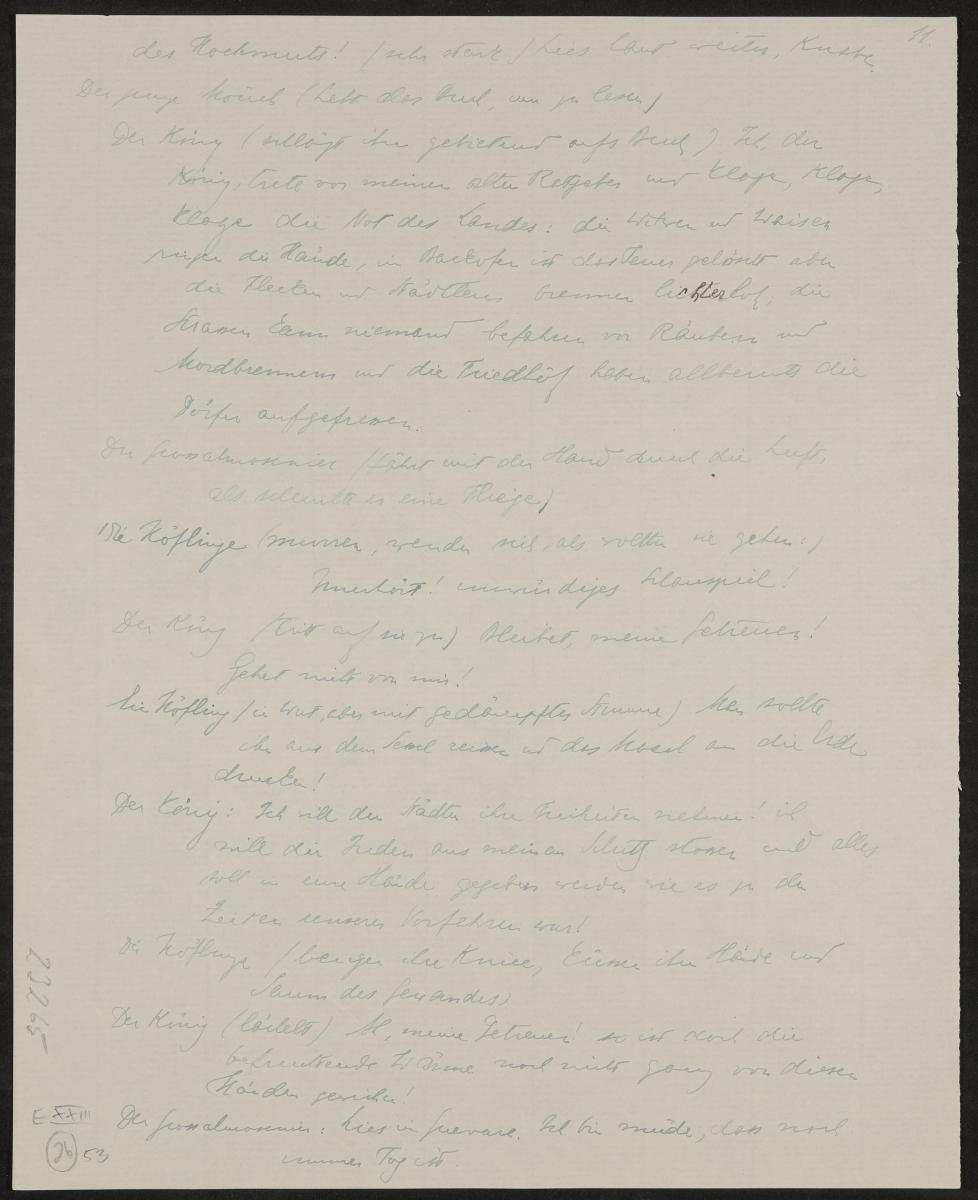 11.
des Hochmuts! (sehr stark) Lies laut weiter, Knabe.
Der junge Mönch (hebt das Buch, um zu lesen)
Der König (schlägt ihm gebietend aufs Buch) Ich, der
König, trete vor meinen alten Ratgeber und Klage, Klage,
Klage die Not des Landes: die Witwen und Waisen
ringen die Hände, im Backofen ist das Feuer gelöscht aber
die Flecken und Städtlens brennen lichterloh; die
Strassen kann niemand befahren vor Räubern und
Mordbrennern und die Friedhöf haben allbereits die
Dörfer aufgefressen.
Der Grossalmosenier (fährt mit der Hand durch die Luft,
als scheuchte er eine Fliege)
Die Höflinge (murren, wenden sich, als wollten sie gehen:)
Unerhört! unwürdiges Schauspiel!
Der König (tritt auf sie zu) Bleibet, meine Getreuen!
Gehet nicht von mir!
Die Höfling (in Wut, aber mit gedämpfter Stimme) Man sollte
ihn aus dem Sessel reissen und das Maul an die Erde
drucken!
Der König: Ich will den Städten ihre Freiheiten nehmen! ich
will die Juden aus meinem Schutz stossen und alles
soll in eure Hände gegeben werden wie es zu den
Zeiten unserer Vorfahren war!
Die Höflinge (beugen ihre Kniee, küssen ihm Hände und
Saum des Gewandes)
Der König (lächelt) Ah, meine Getreuen! so ist doch die
befruchtende Wärme noch nicht ganz von diesen
Händen gewichen!
Der Grossalmosenier: Lies im Guevara. Ich bin müde, dass noch
immer Tag ist.
23265
E XXIII
26 53